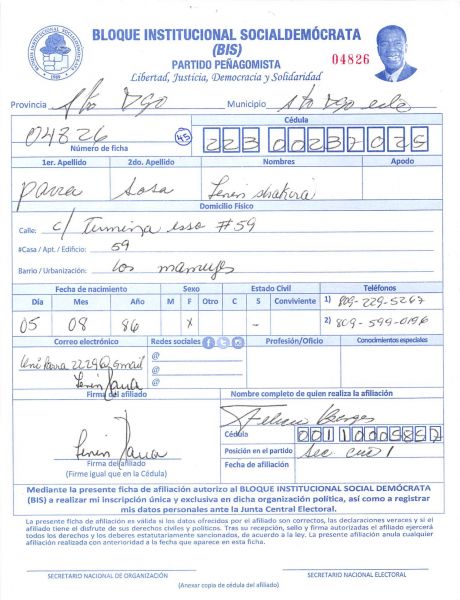 BLOQUE INSTITUCIONAL SOCIALDEMÓCRATA
(BIS)
PARTIDO PEÑAGOMISTA
04826
Libertad, Justicia, Democracia y Solidaridad
BLOQUE INSTITUCIONAL SOCIALDEMÓCRATA
Provincia Sto Dgo Municipio Sto Dgo este
Cédula
04826 45 223 0023702 5
Número de ficha
1er. Apellido 2do. Apellido Nombres Apodo
Parra Sosa Lenin
Domicilio Físico
Calle: c/ #59
#Casa / Apt. / Edificio: 59
Barrio / Urbanización: Los
Fecha de nacimiento Sexo Estado Civil Teléfonos
Día Mes Año M F Otro C S Conviviente 1) 809-229-5267
05 08 86 x - 2) 809-599-0196
Correo electrónico Redes sociales Profesión/Oficio Conocimientos especiales
@
@
@
Firma del afiliado Nombre completo de quien realiza la afiliación
Cédula 00110005857
Posición en el partido Sec
Firma del afiliado
(Firme igual que en la Cédula)
Fecha de afiliación
Mediante la presente ficha de afiliación autorizo al BLOQUE INSTITUCIONAL SOCIAL DEMÓCRATA
(BIS) a realizar mi inscripción única y exclusiva en dicha organización política, así como a registrar
mis datos personales ante la Junta Central Electoral.
La presente ficha de afiliación es válida si los datos ofrecidos por el afiliado son correctos, las declaraciones veraces y si el
afiliado tiene el disfrute de sus derechos civiles y políticos. Tras su recepción, sello y firma autorizadas el afiliado ejercerá
todos los derechos y los deberes estatutariamente sancionados, de acuerdo a la ley. La presente afiliación anula cualquier
afiliación realizada con anterioridad a la fecha que aparece en esta ficha.
SECRETARIO NACIONAL DE ORGANIZACIÓN SECRETARIO NACIONAL ELECTORAL
(Anexar copia de cédula del afiliado)